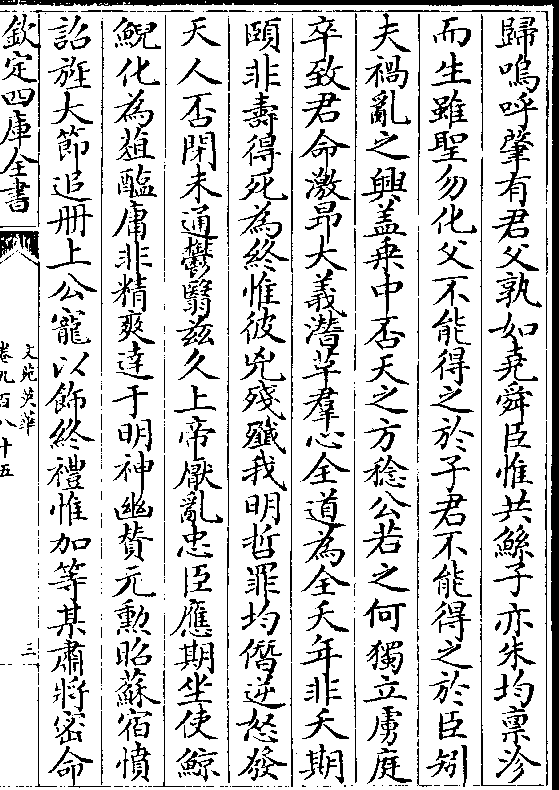 歸嗚呼肇有君父孰如堯舜臣惟共鯀子亦朱均禀沴
而生雖聖勿化父不能得之於子君不能得之於臣矧
夫禍亂之興蓋乗中否天之方稔公若之何獨立虜庭
卒致君命激昂大義潛革羣心全道為全夭年非夭期
頤非壽得死為終惟彼兇殘殲我明哲罪均僭逆怒發
天人否閉未通鬱翳兹久上帝厭亂忠臣應期坐使鯨
鯢化為葅醢庸非精爽達于明神幽賛元勲昭蘇宿憤
詔旌大節追册上公寵以飾終禮惟加等某肅將密命
欽定四庫全書
文苑英華
卷九百八十五
三